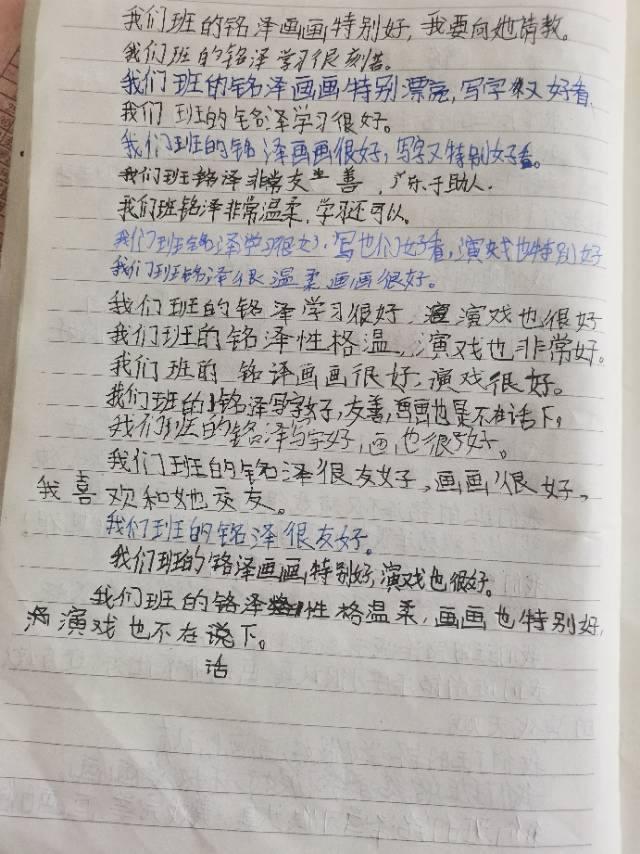 我们班的铭泽画画特别好，我要向她请教。
我们班的铭泽学习很刻苦。
我们班的铭泽画画特别漂亮，写字又好看
我们班的铭泽学习很好。
我们班的铭泽画画很好，写字又特别好看。
我们班铭泽非常友善，乐于助人.
我们班铭泽非常温柔，学习还可以。
我们班铭泽学习很好，写也们好看，演戏也特别好
我们班铭泽很温柔画画很好。
我们班的铭泽学习很好，演戏也很好
我们班的铭泽性格温，演戏也非常好。
我们班的铭译画画很好，演戏很好。
我们班的铭泽写字好，友善，画画也是不在话下，
我们班的铭泽写字好，画也很好。
我们班的铭泽很友好，画画很好，
我喜欢和她交友。
我们班的铭泽很友好。
我们班的铭泽画画特别好，演戏也很好。
我们班的铭泽性格温柔，画画也特别好，
演戏也不在说下。
话